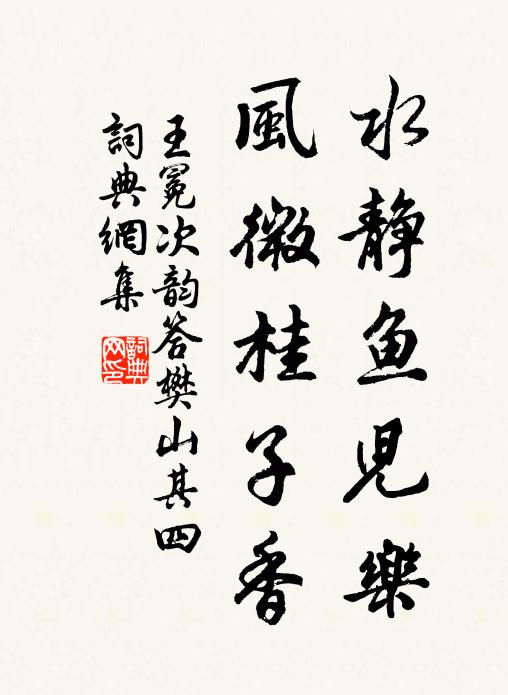 水静魚児樂
風微桂子香
王冕次韵答樊山其四
詞典網集
詞典網印